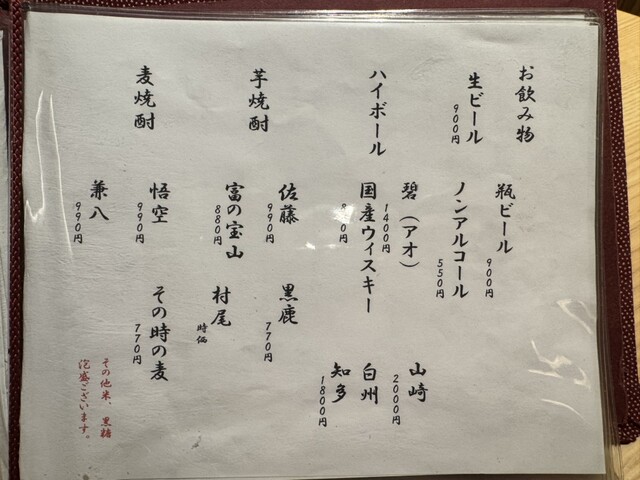 お飲み物
生ビール
900円
瓶ビール
900円
ノンアルコール
550円
ハイボール
碧(アオ)
1400円
山崎
2000円
国産ウィスキー
白州
知多
1800円
芋焼酎
佐藤
990円
黒鹿
770円
富の宝山
880円
村尾
時価
麦焼酎
悟空
990円
その時の麦
770円
兼八
990円
その他米、黒糖
泡盛ございます。